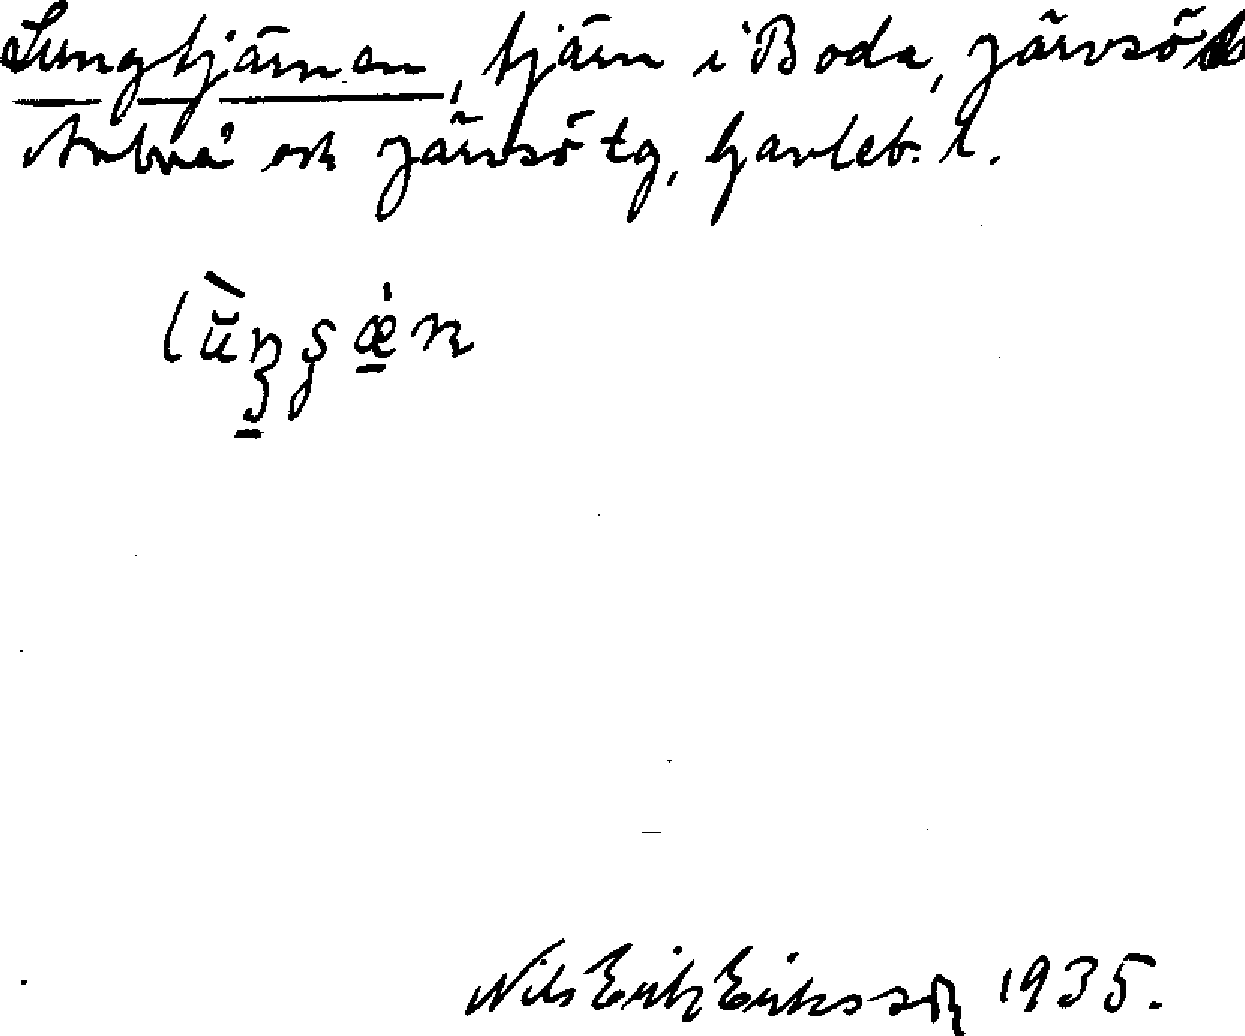 Lungtjärnen, tjärn i Boda, Järvsö s
Arbrå och Järvsö tg, Gävleb. l.
lùŋʂǽn
Nils Erik Eriksson 1935.